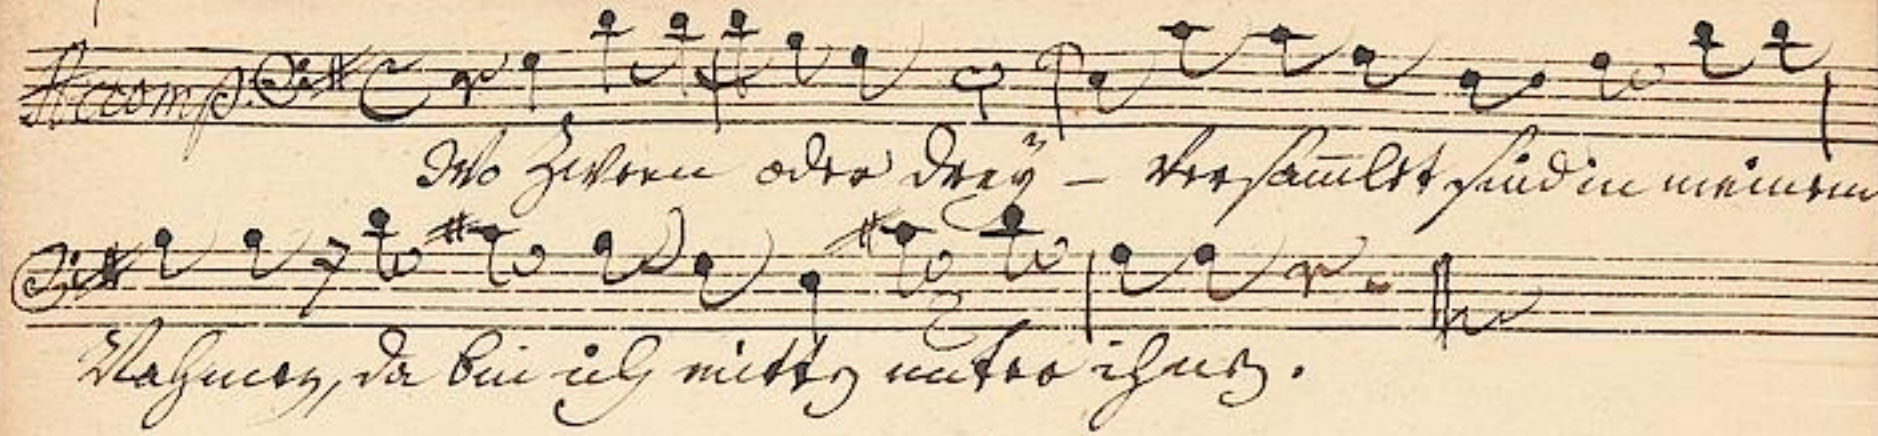 Accomp.
Wo Zween oder dreÿ – versam̅let sind in meinem
Nahmen, da bin ich mitten unter ihnen.